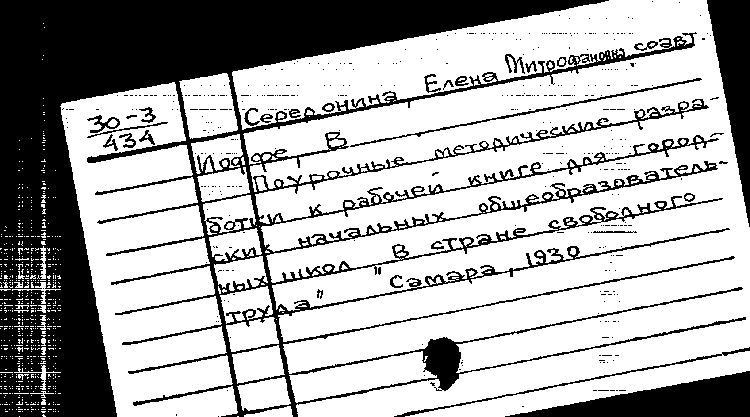 30-3
434
Середонина, Елена Митрофановна соавт.
Иоффе, В
Поурочные методические разра-
ботки к рабочей книге для город-
ских начальных общеобразователь-
ных школ "В стране свободного
труда" Самара, 1930